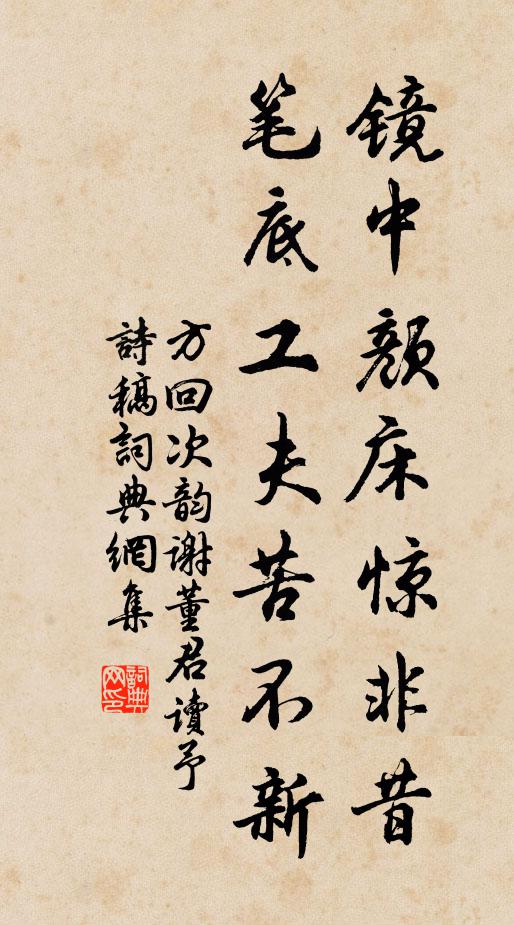 镜中颜床惊非昔
笔底工夫苦不新
方回次韵谢董君读予
詩稿詞典網集
詞典
网印